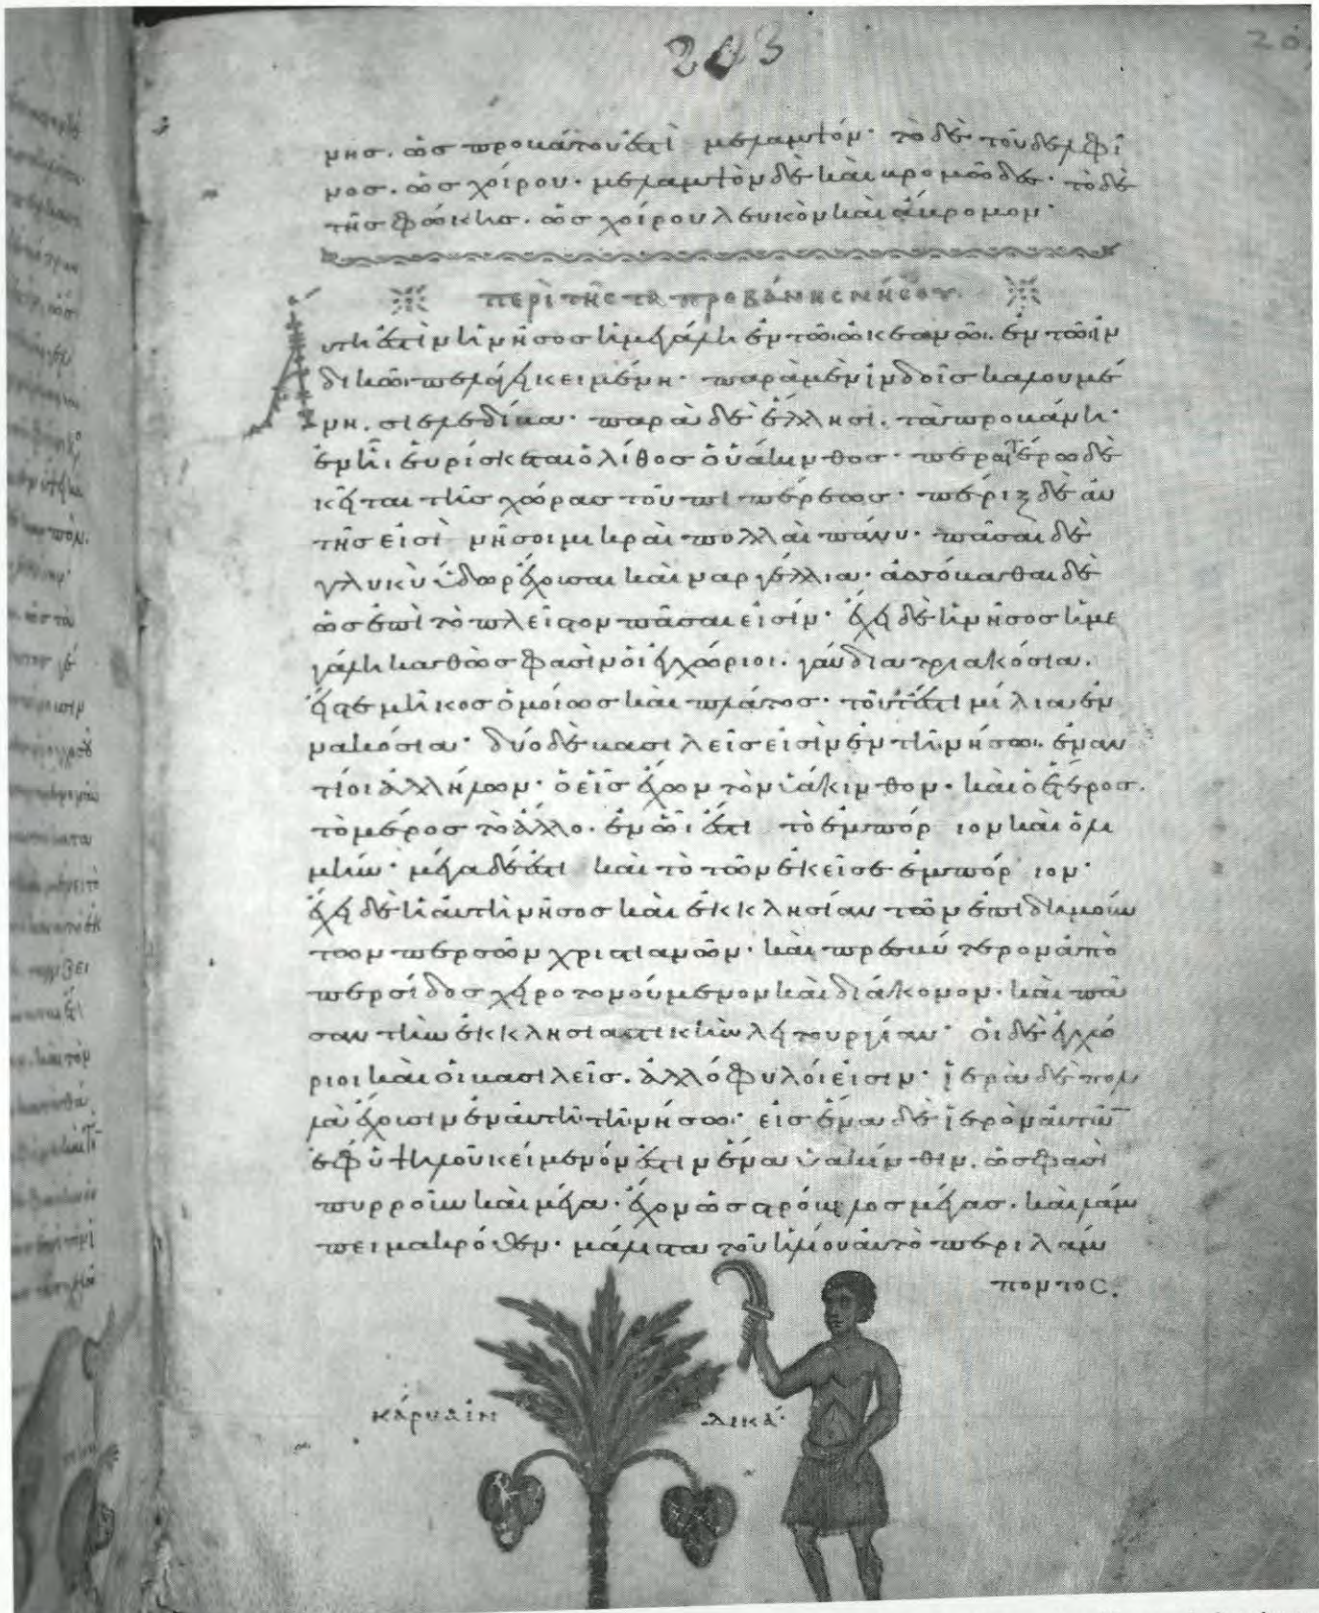 203
νης. ὡς προβάτου ἐστὶ μελαμψόν· τὸ δὲ τοῦ δελφῖ
νος. ὡς χοίρου· μελαμψὸν δὲ καὶ βρομῶδες· τὸ δὲ
τῆς φώκης. ὡς χοίρου λευκὸν καὶ ἄβρομον·
ΠΕΡῚ ΤΗ͂Σ ΤΑΠΡΟΒΆΝΗΣ ΝΉΣΟΥ
Αὕτη ἐστὶν ἡ νῆσος ἡ μεγάλη ἐν τῶι ὠκεανῶι. ἐν τῶι ἰν
δικῶι πελάγει κειμένη· παρὰ μὲν ἰνδοῖς καλουμέ
νη. σιελεδίβα· παρὰ δὲ ἕλλησι. ταπροβάνη·
ἐν ἧι εὑρίσκεται ὁ λίθος ὁ ὑάκινθος· περαιτέρω δὲ
κεῖται τῆς χώρας τοῦ πιπέρεως· πέριξ δὲ αὐ
τῆς εἰσὶ νῆσοι μικραὶ πολλαὶ πάνυ· πᾶσαι δὲ
γλυκὺ ὕδωρ ἔχουσαι καὶ ναργέλλια· ἀσσόβαθαι δὲ
ὡς ἐπὶ τὸ πλεῖστον πᾶσαι εἰσίν· ἔχει δὲ ἡ νῆσος ἡ με
γάλη καθὼς φασὶν οἱ ἐγχώριοι. γαύδια τριακόσια.
εἴς τε μῆκος ὁμοίως καὶ πλάτος· τουτέστι μίλια ἐν
νακόσια· δύο δὲ βασιλεῖς εἰσὶν ἐν τῆι νήσωι. ἐναν
τίοι ἀλλήλων· ὁ εἷς ἔχων τὸν ὑάκινθον· καὶ ὁ ἕτερος.
τὸ μέρος τὸ ἄλλο. ἐν ὧι ἐστι τὸ ἐμπόριον καὶ ὁ λι
μήν· μέγα δέ ἐστι καὶ τὸ τῶν ἐκεῖσε ἐμπόριον·
ἔχει δὲ ἡ αὐτὴ νῆσος καὶ ἐκκλησίαν τῶν ἐπιδημούν
των περσῶν χριστιανῶν· καὶ πρεσβύτερον ἀπὸ
περσίδος χειροτονούμενον καὶ διάκονον· καὶ πᾶ
σαν τὴν ἐκκλησιαστικὴν λειτουργίαν· οἱ δὲ ἐγχώ
ριοι καὶ οἱ βασιλεῖς. ἀλλόφυλοί εἰσιν· ἱερὰ δὲ πολ
λὰ ἔχουσιν ἐν αὐτῆι τῆι νήσωι· εἰς ἕνα δὲ ἱερὸν αὐτῶν
ἐφ' ὑψηλοῦ κείμενόν ἐστιν ἕνα ὑακίνθιν. ὡς φασὶ
πυρροῦν καὶ μέγα· ἔχον ὡς στρόβιλος μέγας. καὶ λάμ
πει μακρόθεν· μάλιστα τοῦ ἡλίου αὐτὸ περιλάμ
ποντος.
κάρυα ἰν
δικά·